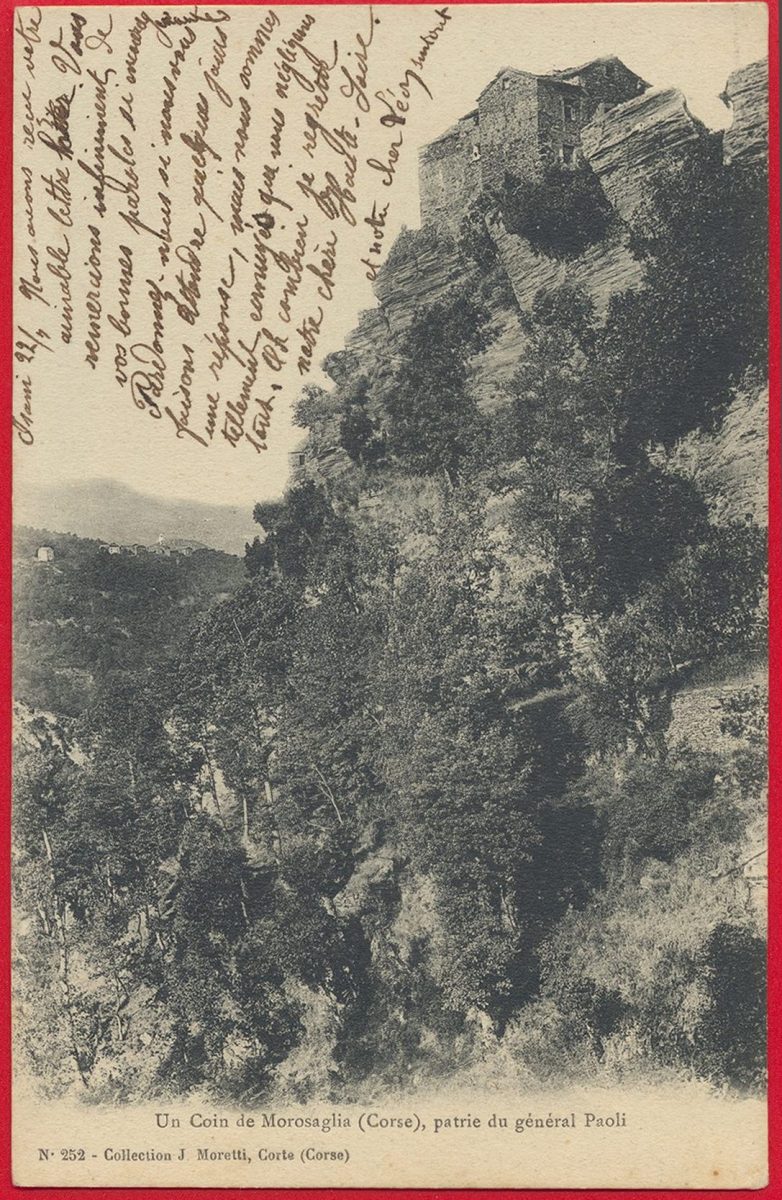 22/1 Nous avons reçu votre
aimable lettre. Vous
remercions infiniment de
vos bonnes paroles
Pardonnez-nous si nous vous
faisons attendre quelques jours
une réponse, mais nous sommes
tellement que nous négligeons
tout. Oh combien je regrette
notre chère Haute-Loire.
et notre cher Léo surtout
Un Coin de Morosaglia (Corse), patrie du général Paoli
N· 252 - Collection J Moretti, Corte (Corse)